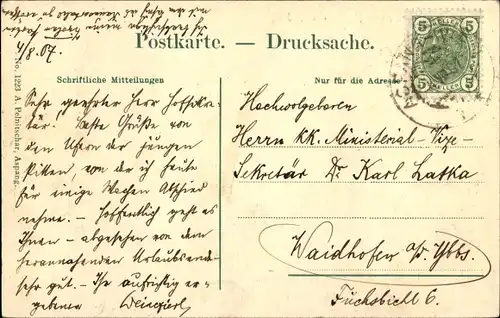 4/8. 07.
Postkarte. — Drucksache.
Schriftliche Mitteilungen
Nur für die Adresse
5 5
HELLER
5 5
No. 1223 A. Pelnitschar, Aspang.
Sehr geehrter Herr
Beste Grüße von
den Ufern der
Pitten, von der ich heute
für einige Wochen Abschied
nehme. — Hoffentlich geht es
Ihnen — abgesehen von dem
herannahenden Urlaubsende
sehr gut. — Ihr aufrichtig er-
gebener
Hochwolgeboren
Herrn KK. Ministerial-Vize-
Sekretär Dr Karl Latka
Waidhofen a/d. Ybbs.
Fuchsbichl 6.